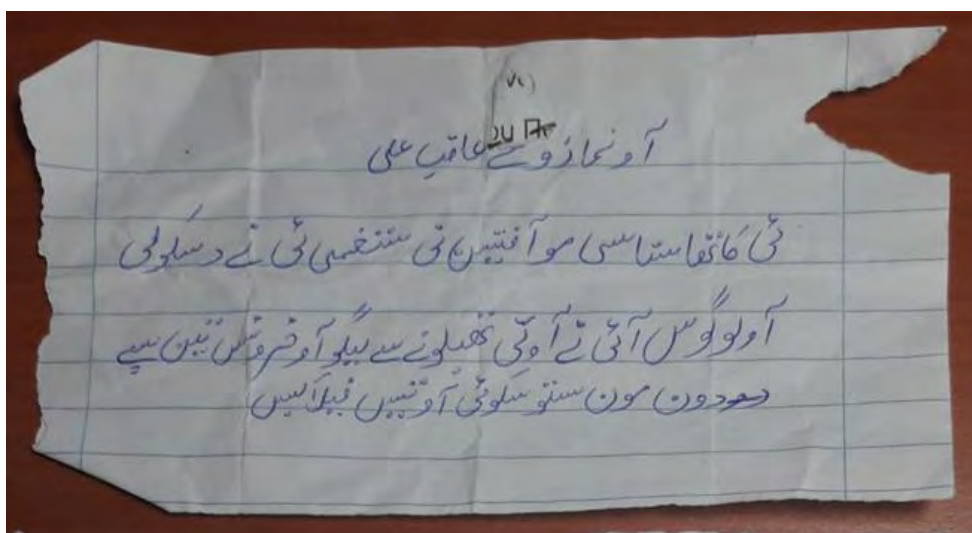 آونمازومے عاقب علی
ئی کاتھاستاسی مو آفتیں تی ستغمی ئی نے دسکولی
آولوگوس آئی نے آوتی تھیلونے سے بیگلو آو فروتس تین سپے
دون مون ستو سکوئی آوتیس فیلاکیس